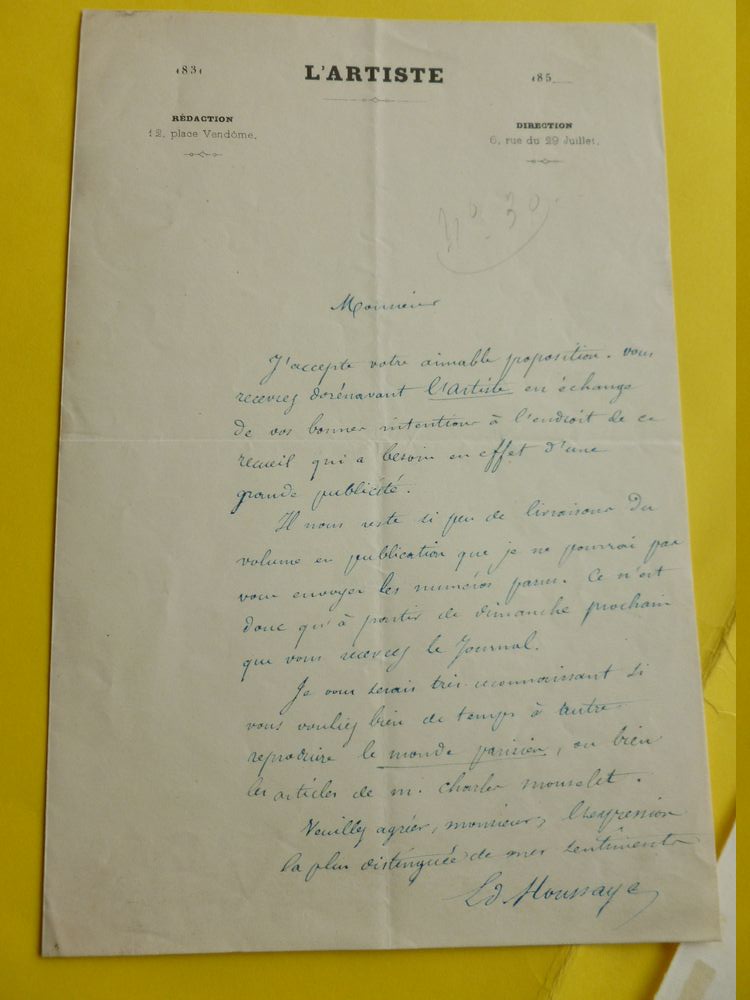 1831
L'ARTISTE
185
RÉDACTION
12, place Vendôme.
DIRECTION
6, rue du 29 Juillet.
N° 30.
Monsieur
J'accepte votre aimable proposition. vous
recevrez dorénavant l'artiste en échange
de vos bonnes intentions à l'endroit de ce
recueil qui a besoin en effet d'une
grande publicité.
Il nous reste si peu de livraisons du
volume en publication que je ne pourrai pas
vous envoyer les numéros parus. Ce n'est
donc qu'à partir de dimanche prochain
que vous recevrez le Journal.
Je vous serais très reconnaissant si
vous vouliez bien de temps à autre
reproduire le monde parisien, ou bien
les articles de m. charles monselet.
Veuillez agréer, monsieur, l'expression
la plus distinguée de mes sentiments
Ed Houssaye